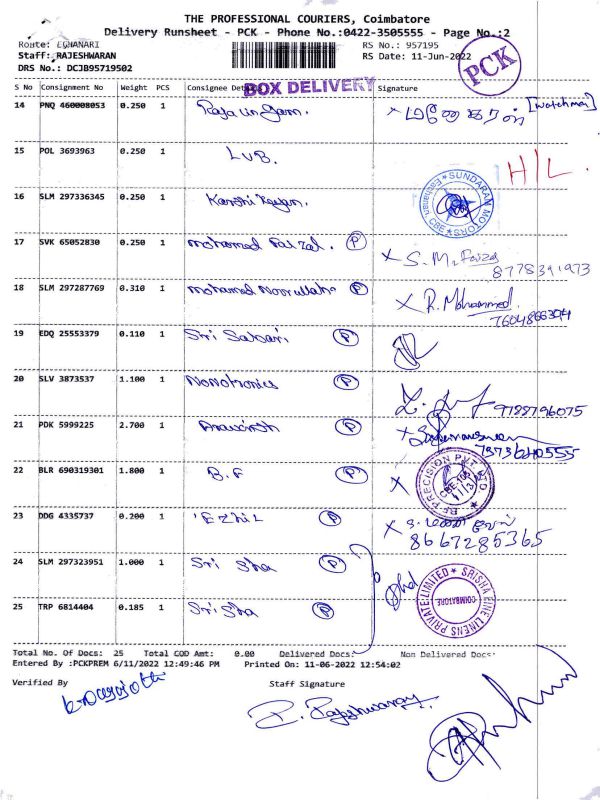 THE PROFESSIONAL COURIERS, Coimbatore
Delivery Runsheet - PCK - Phone No.:0422-3505555 - Page No.:2
Route: ECHANARI RS No.: 957195
Staff: RAJESHWARAN RS Date: 11-Jun-2022
DRS No.: DCJB95719502
PCK
BOX DELIVERY
S No Consignment No Weight PCS Consignee Signature
14 PNQ 460008053 0.250 1 [Watchman]
15 POL 3693963 0.250 1 LVB. H/L.
16 SLM 297336345 0.250 1 SUNDARAM MOTORS CBE
17 SVK 65052830 0.250 1 mohamed Faizal. P X S.M.Faiza
8778391973
18 SLM 297287769 0.310 1 mohamed Noorullah P X R.Mohammed.
7604866304
19 EDQ 25553379 0.110 1 Sri P
20 SLV 3873537 1.100 1 Nonotronics P
9788796075
21 PDK 5999225 2.700 1 P X
7373640555
22 BLR 690319301 1.800 1 B.F P X RF PRECISION PVT LTD
23 DDG 4335737 0.200 1 EZHIL P X
8667285365
24 SLM 297323951 1.000 1 Sri Sha P
25 TRP 6814404 0.185 1 Sri Sha P SRISHA FINE LINENS PRIVATE LIMITED COIMBATORE
Total No. Of Docs: 25 Total COD Amt: 0.00 Delivered Docs: Non Delivered Docs:
Entered By :PCKPREM 6/11/2022 12:49:46 PM Printed On: 11-06-2022 12:54:02
Verified By Staff Signature